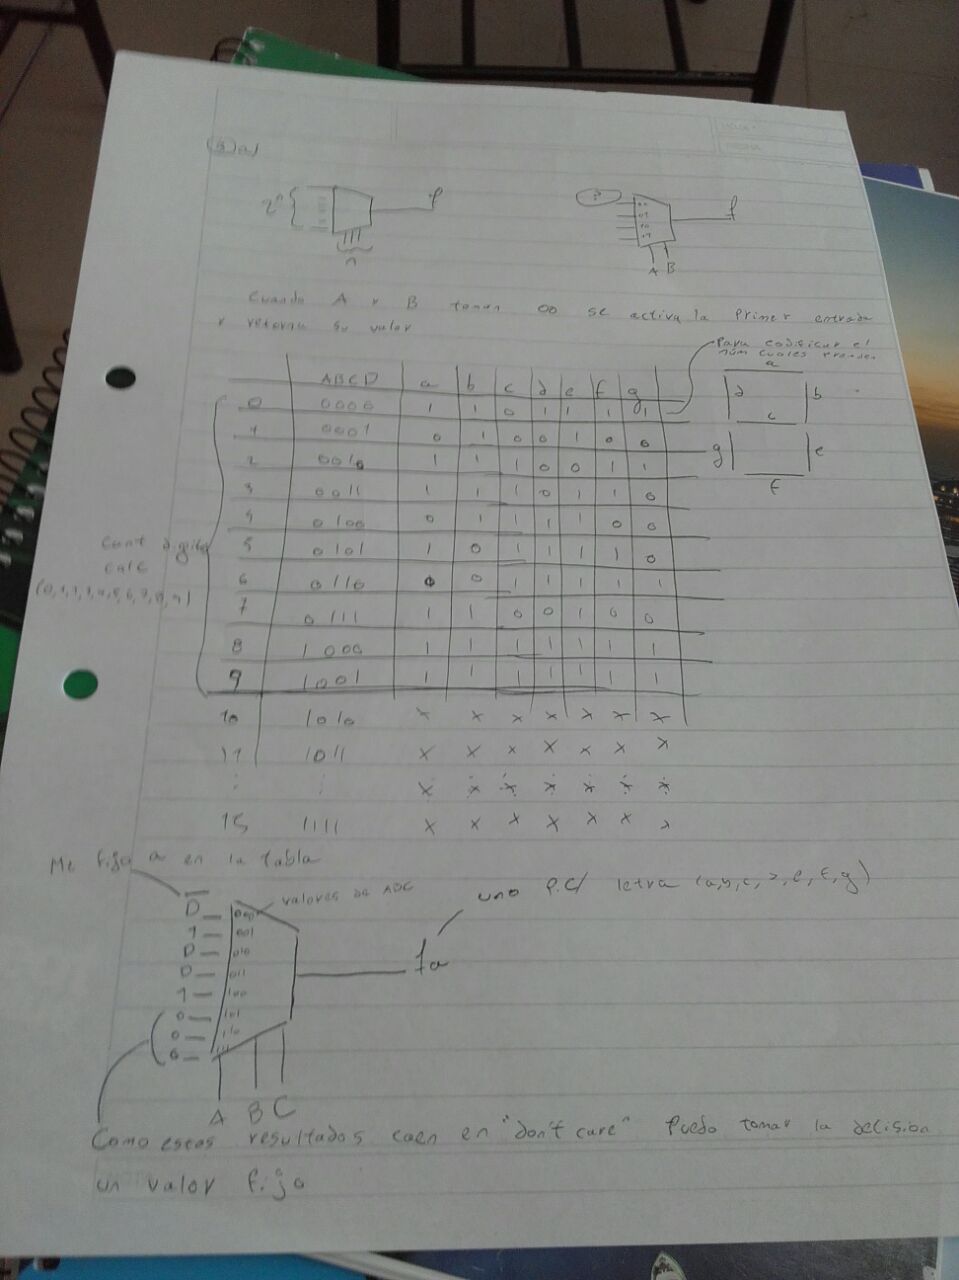 3)a)
2ⁿ { f
n
? f
00
01
10
11
A B
Cuando A y B toman 00 se activa la primer entrada
y retorna su valor
Para codificar el
núm cuales prenden
ABCD a b c d e f g
0 0000 1 1 0 1 1 1 1
1 0001 0 1 0 0 1 0 0
2 0010 1 1 1 0 0 1 1
3 0011 1 1 1 0 1 1 0
4 0100 0 1 1 1 1 0 0
5 0101 1 0 1 1 1 1 0
6 0110 0 0 1 1 1 1 1
7 0111 1 1 0 0 1 0 0
8 1000 1 1 1 1 1 1 1
9 1001 1 1 1 1 1 1 1
10 1010 x x x x x x x
11 1011 x x x x x x x
⋮ ⋮ x x x x x x x
15 1111 x x x x x x x
a
d b
c
g e
f
Cant digitos
calc
(0,1,2,3,4,5,6,7,8,9)
Me fijo a en la tabla
valores de ABC
uno p.c/ letra (a,b,c,d,e,f,g)
D̅ 000
1 001
D 010
D 011
1 100
0 101
0 110
0 111
fa
A B C
Como estos resultados caen en "don't care" Puedo tomar la decision
un valor fijo